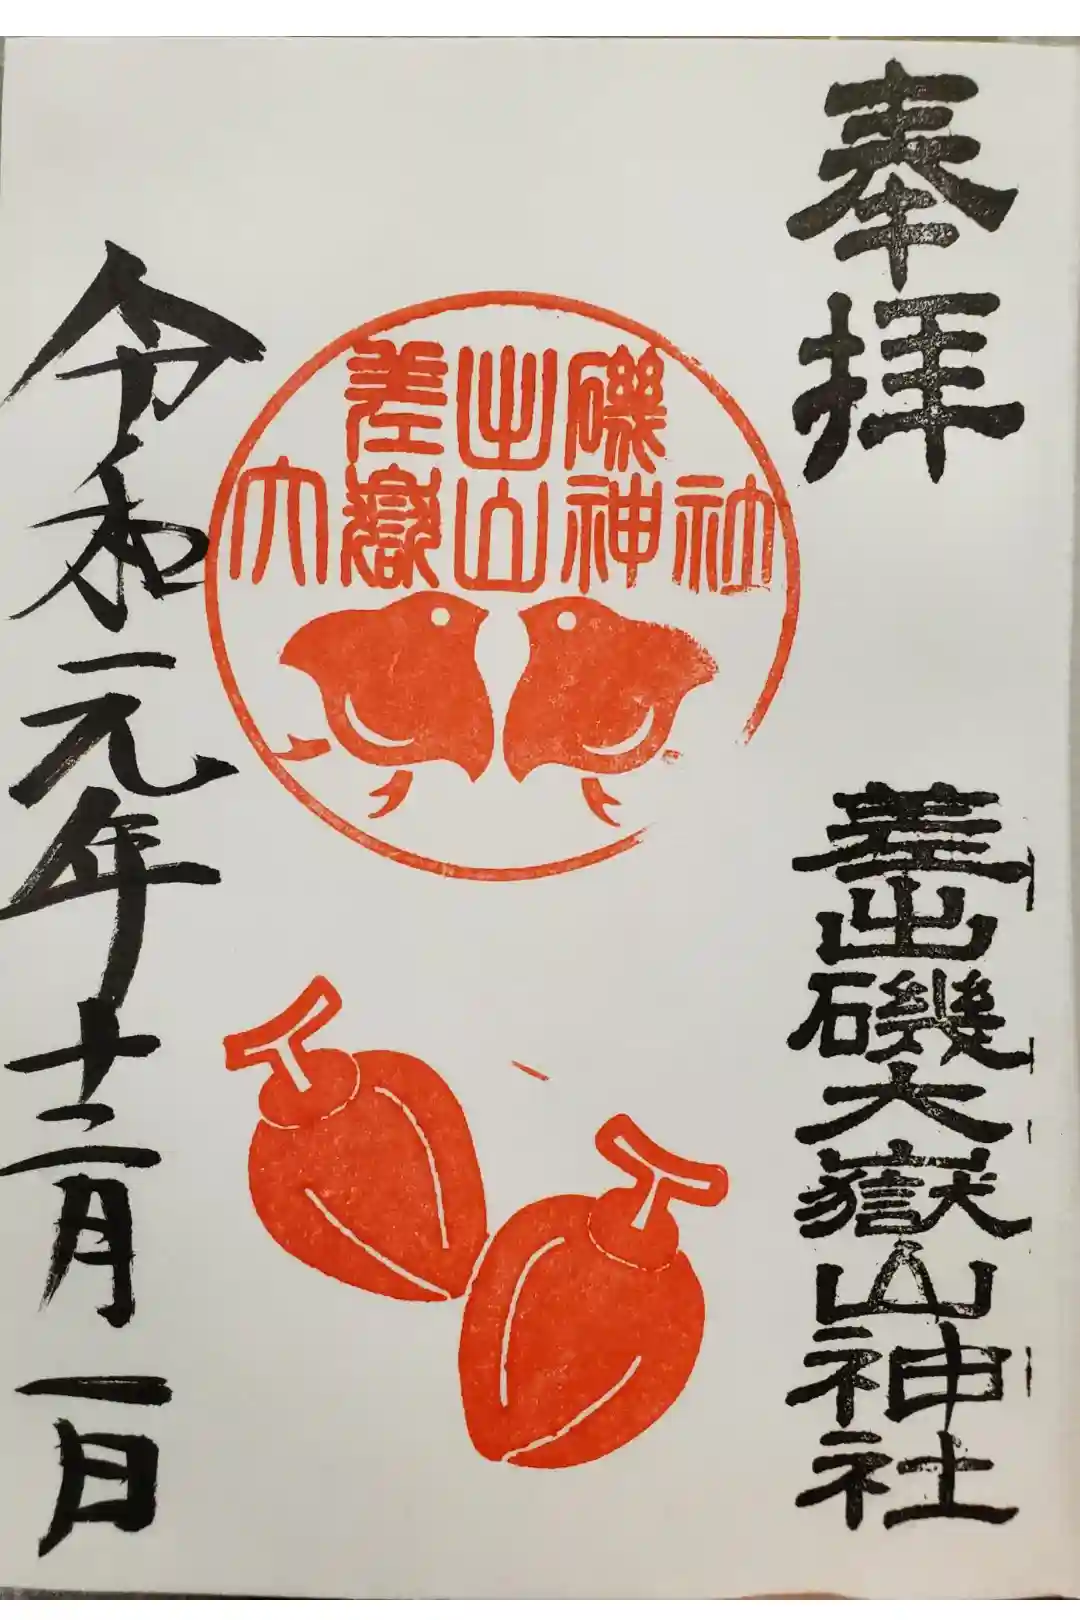 奉拝
差出磯大嶽山神社
差出磯
大嶽山神社
令和元年十二月一日